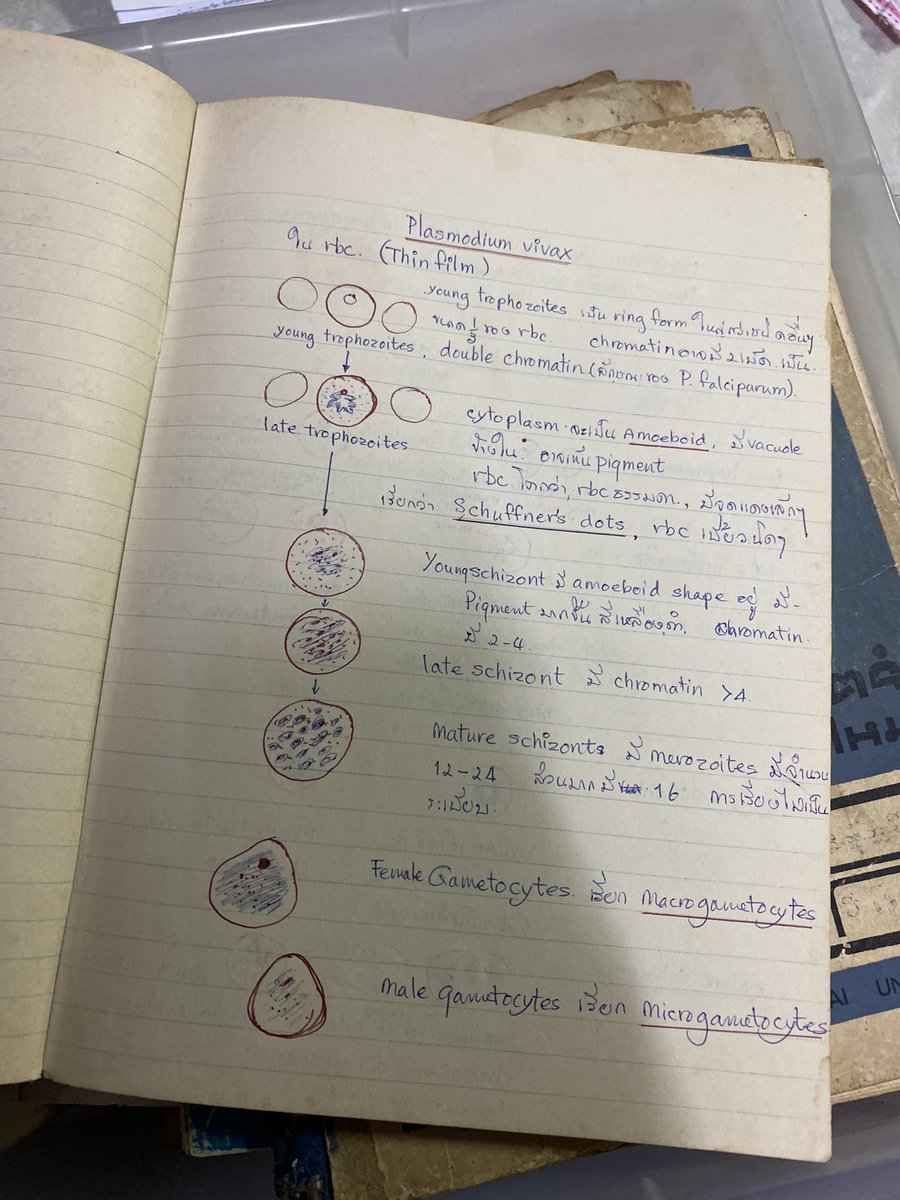 Plasmodium vivax
ใน rbc. (Thin film)
young trophozoites เป็น ring form ใหญ่กว่าชนิดอื่นๆ
ขนาด 1/3 ของ rbc. chromatin อาจมี 2 เม็ด เป็น
young trophozoites. double chromatin (ลักษณะของ P. falciparum).
cytoplasm จะเป็น Amoeboid, มี vacuole
late trophozoites
ข้างใน. อาจเห็น pigment
rbc โตกว่า, rbc ธรรมดา., มีจุดแดงเล็กๆ
เรียกว่า Schuffner's dots, rbc เบี้ยวนิดๆ
Young schizont มี amoeboid shape อยู่ มี-
Pigment มากขึ้น สีเหลืองดำ. chromatin
มี 2-4.
late schizont มี chromatin >4.
mature schizonts มี merozoites มีจำนวน
12-24 ส่วนมากมี 16 การเรียงไม่เป็น
ระเบียบ.
Female Gametocytes. เรียก Macrogametocytes
male gametocytes เรียก Microgametocytes
AI UN